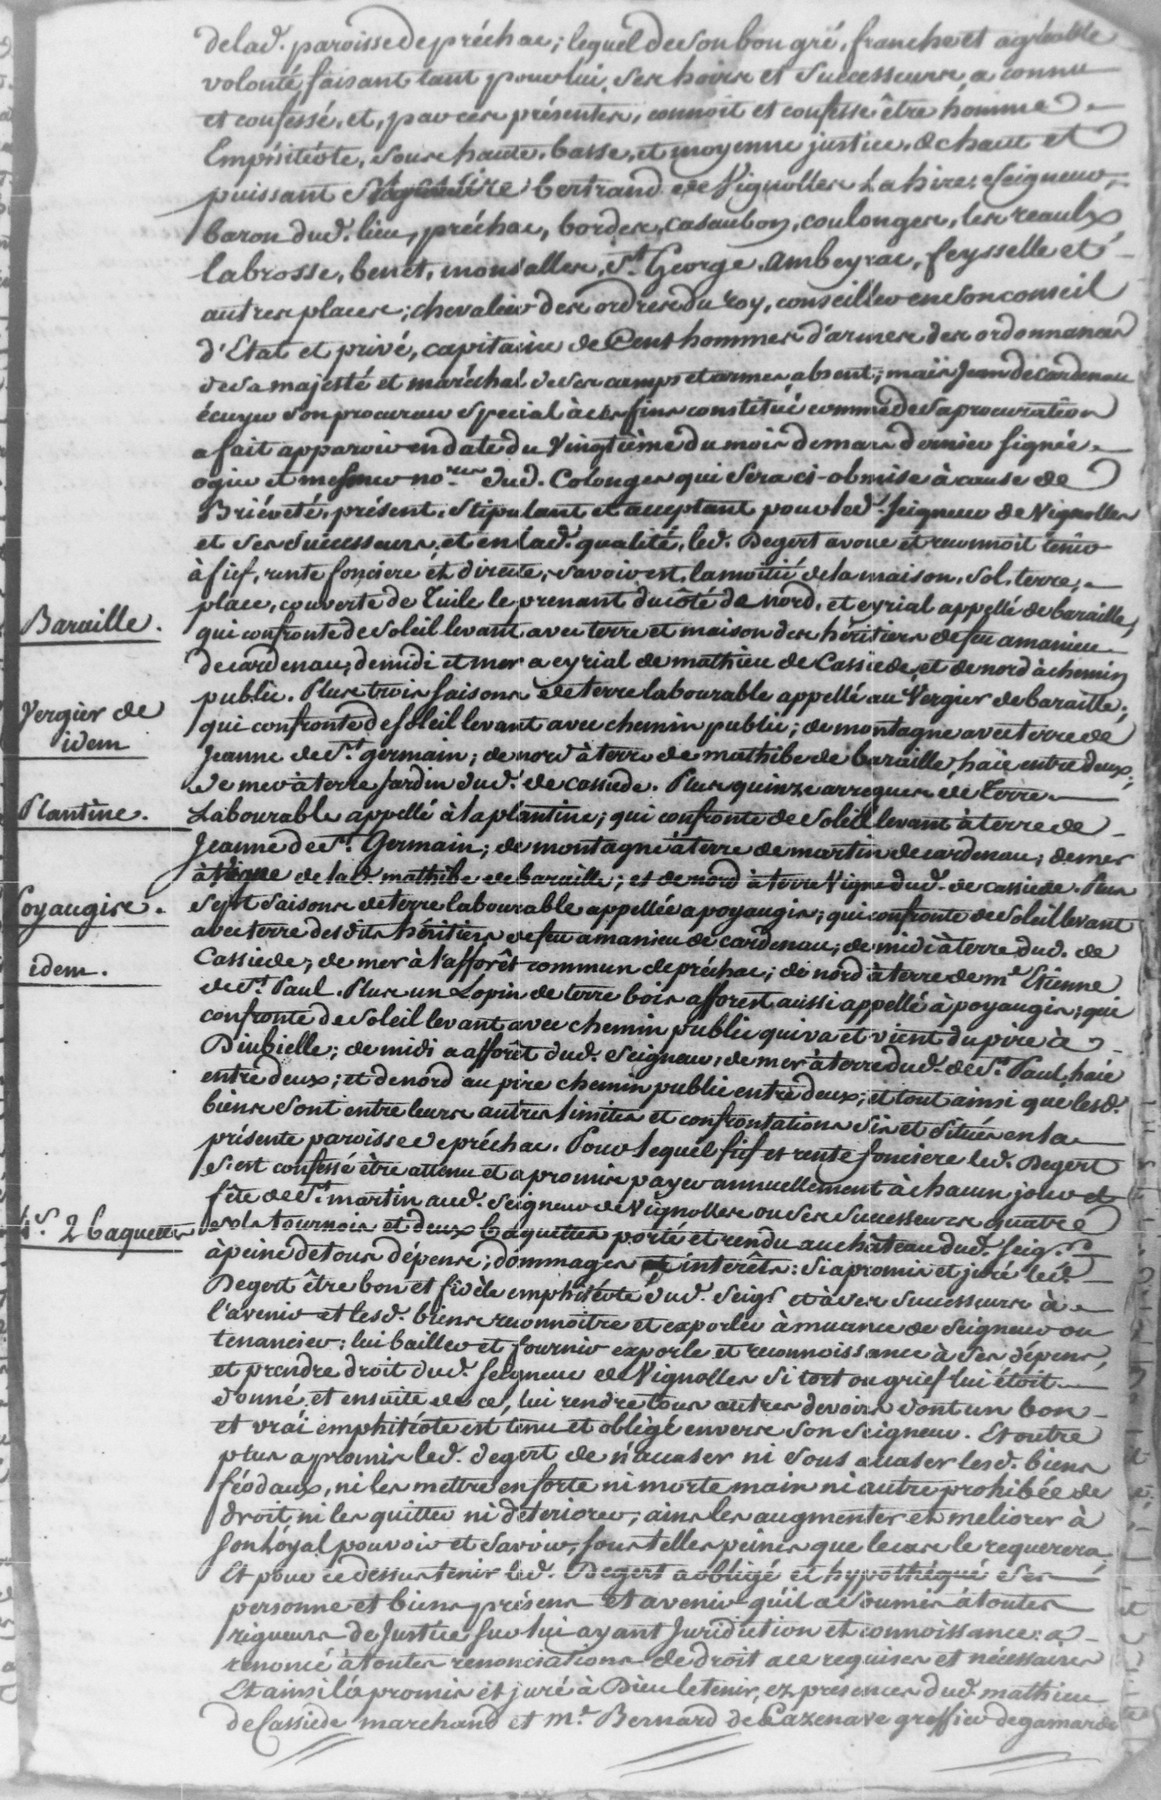 delad. paroisse de préchac; lequel de son bon gré, franche et agréable
volonté, faisant tant pour lui, ses hoirs et successeurs, a connu
et confessé, et, par ces présentes, connoit et confesse être homme
Emphitéote, sous haute, basse, et moyenne justice, de haut et
puissant Messire bertrand de Vignolles Lahire, Seigneur,
baron dud. lieu, préchac, bordes, casaubon, coulonges, les reaulx,
labrosse, benet, monsalles, St. George, Ambeyrac, feysselle et
autres places; chevalier des ordres du roy, conseiller en son conseil
d'Etat et privé, capitaine de Cent hommes d'armes des ordonnances
de sa majesté et maréchal de ses camps et armes absent; mais Jean de cardenau
écuyer son procureur spécial à ces fins constitué comme de sa procuration
a fait apparoir en date du Vingtième du mois de mars dernier signée
ogier et nores. dud. Colonges qui sera ci-obmise à cause de
Briéveté, présent, stipulant et acceptant pour led. Seigneur de Vignolles
et ses successeurs, et en lad. qualité, led. Degert avoue et reconnoit tenir
à fief, rente fonciere et directe, savoir est, la moitié de la maison, sol, terre,
place, couverte de Tuile le prenant du côté de nord, et eyrial appellé de baraille,
Baraille.
qui confronte de soleil levant avec terre et maison des héritiers de feu amanieu
de cardenau; de midi et mer a eyrial de mathieu de Cassiede, et de nord à chemin
public. Plus trois saisons de terre labourable appellé au Vergier de baraille;
Vergier de
idem
qui confronte de soleil levant avec chemin public; de montagne avec terre de
Jeanne de St. germain; de nord à terre de mathibe de baraille, haie entre deux;
de mer à terre Jardin dud. de cassiede. Plus quinze arregues de Terre
Plantine.
Labourable appellé à la plantine; qui confronte de soleil levant à terre de
Jeanne de St. Germain; de montagne à terre de martin de cardenau; de mer
à vigne de lad. mathibe de baraille; et de nord à terre Vigne dud. de cassiede. Plus
poyaugise.
sept saisons de terre labourable appellée a poyaugis; qui confronte de soleil levant
avec terre desdits héritiers de feu amanieu de cardenau; de midi à terre dud. de
idem.
Cassiede; de mer à l'afforêt commun de préchac; de nord à terre de me. Etienne
de St. Paul. Plus un Lopin de terre bois afforest aussi appellé à poyaugis; qui
confronte de soleil levant avec chemin public qui va et vient du pire à
Diubielle; de midi a afforêt dud. Seigneur; de mer à terre dud. de St. Paul, haie
entre deux; et de nord au pire chemin public entre deux; et tout ainsi que lesd.
biens sont entre leurs autres limites et confrontations sis et situés en la
présente paroisse de préchac. Pour lequel fief et rente fonciere led. Degert
s'est confessé être attenu et a promis payer annuellement à chacun jour et
fête de St. martin aud. Seigneur de Vignolles ou ses successeurs quatre
4s. 2 baquettes
sols tournois et deux baquettes porté et rendu au château dud. Seigr.
à peine de tous dépens, dommages et interêts: si a promis et juré led.
Degert être bon et fidèle emphitéote dud. Seigr. et à ses successeurs à
l'avenir et lesd. biens reconnoitre et exporler à muance de Seigneur ou
tenancier: lui bailler et fournir exporle et reconnoissance à ses dépens,
et prendre droit dud. Seigneur de Vignolles si tort ou grief lui étoit
donné, et ensuite de ce, lui rendre tous autres devoirs dont un bon
et vrai emphitéote est tenu et obligé envers son Seigneur. Et outre
plus a promis led. degert de n'acaser ni sous acaser lesd. biens
féodaux, ni les mettre en forte ni morte main ni autre prohibée de
droit, ni les quitter ni déteriorer; ains les augmenter et meliorer à
son Loyal pouvoir et savoir, sous telles peines que le cas le requerera.
Et pour ce dessus tenir led. Degert a obligé et hypothéqué ses
personne et biens présens et avenir qu'il a soumis à toutes
rigueurs de Justice sur lui ayant Juridiction et connoissance: a
renoncé à toutes renonciations de droit a ce requises et nécessaires
Et ainsi l'a promis et juré à Dieu le tenir, ez présences dud. mathieu
de Cassiede marchand et me. Bernard de Cazenave greffier de gamarde